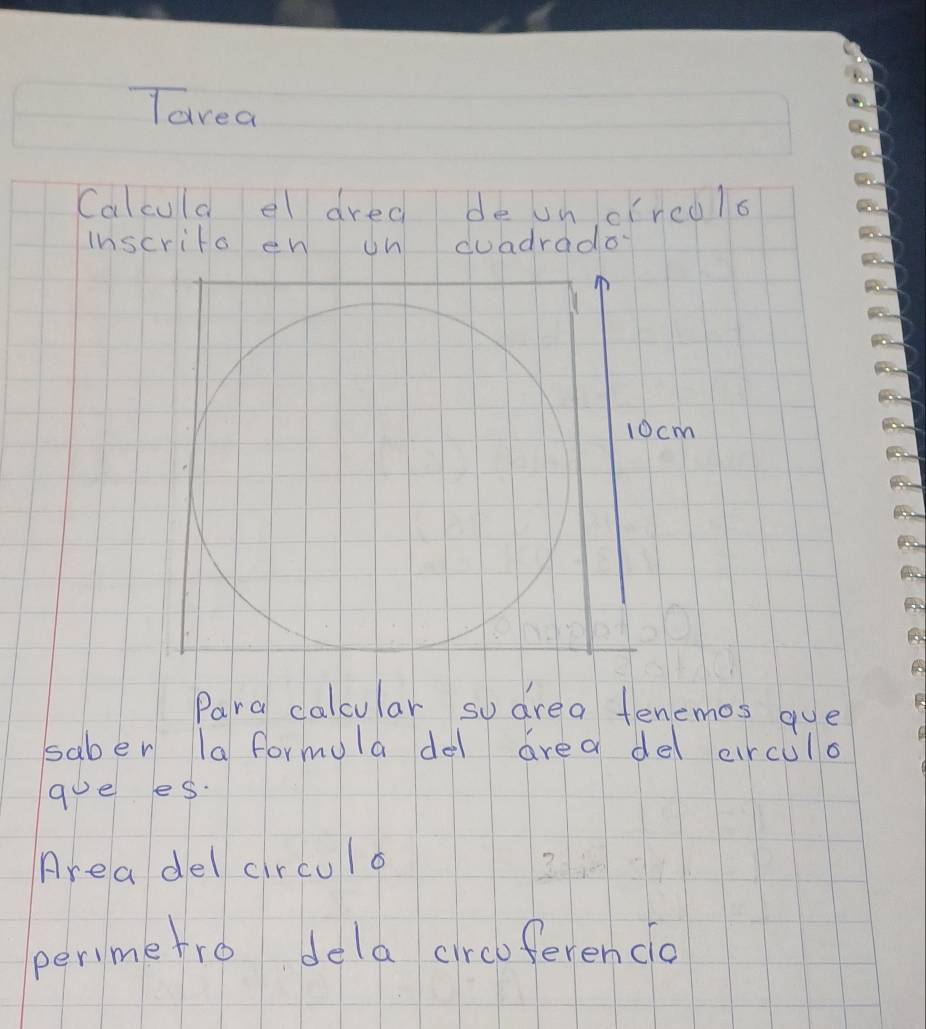 Tarea
Calcula el área de un círculo
inscrito en un cuadrado
10cm
Para calcular su área tenemos que
saber la formula del área del circulo
que es.
Area del circulo
perimetro dela circuferencia